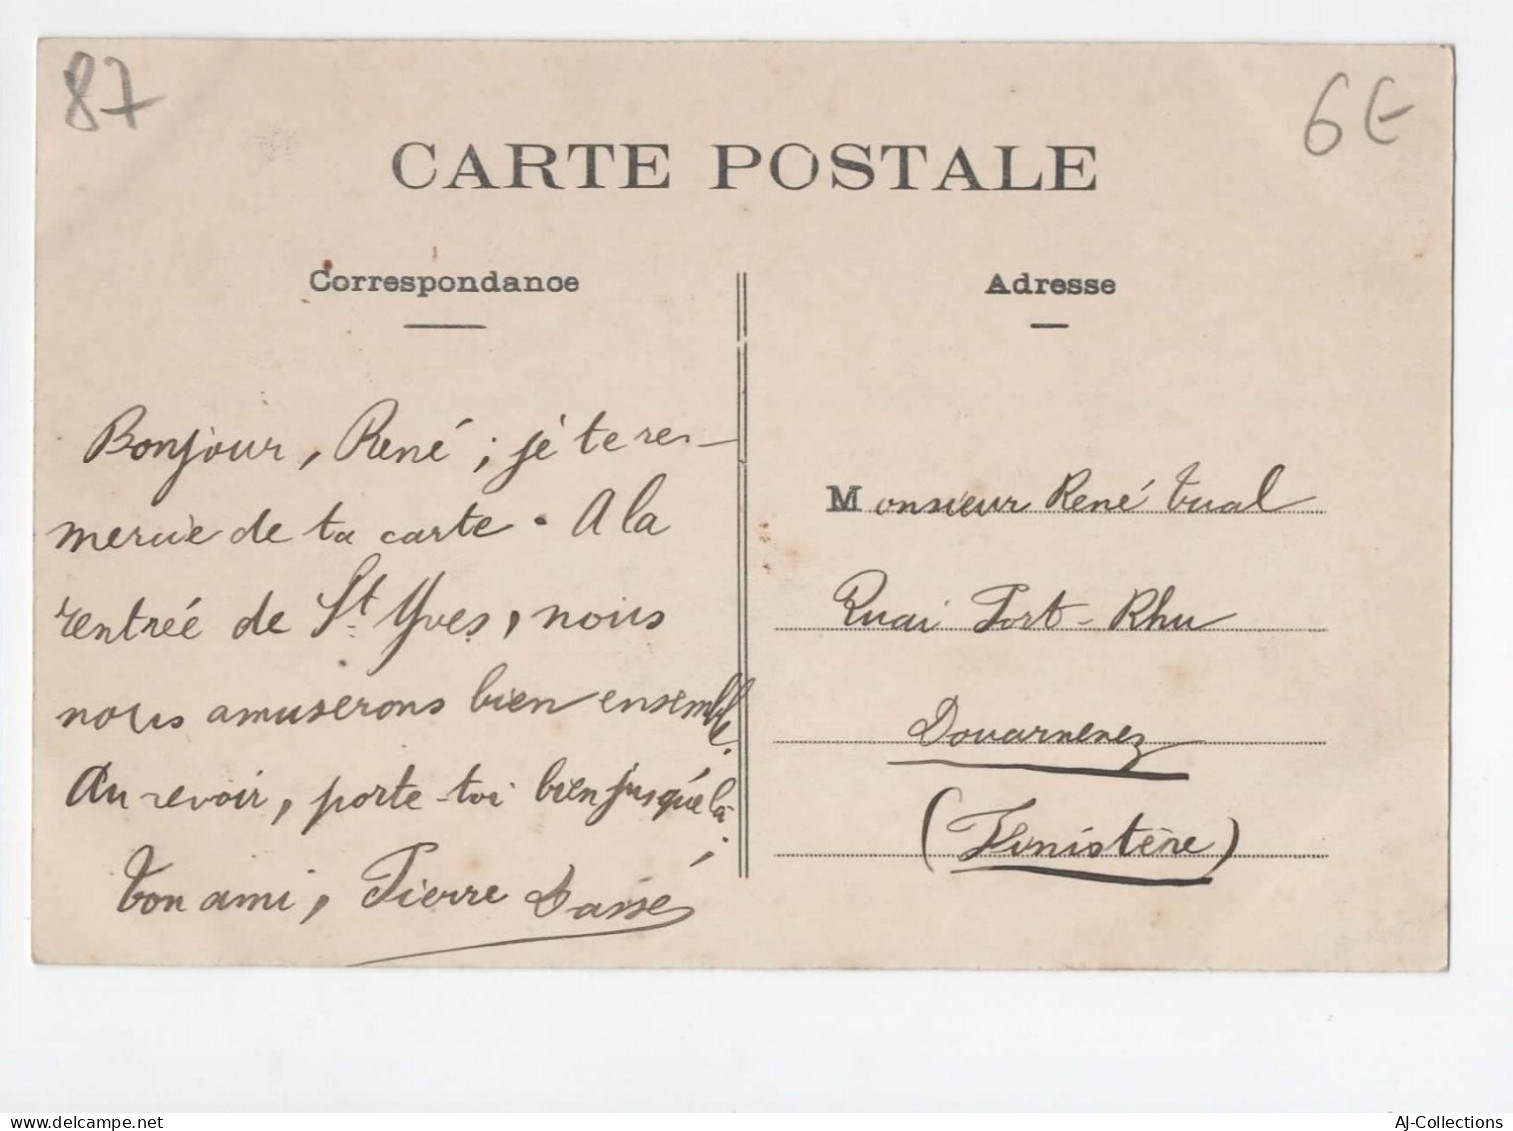 87
6€
CARTE POSTALE
Correspondance
Bonjour, René ; je te re-
mercie de ta carte. A la
rentrée de St Yves, nous
nous amuserons bien ensemble.
Au revoir, porte-toi bien jusque là.
Ton ami, Pierre Dassé
Adresse
Monsieur René Tual
Quai Port-Rhu
Douarnenez
(Finistère)
delcampe.net
AJ-Collections